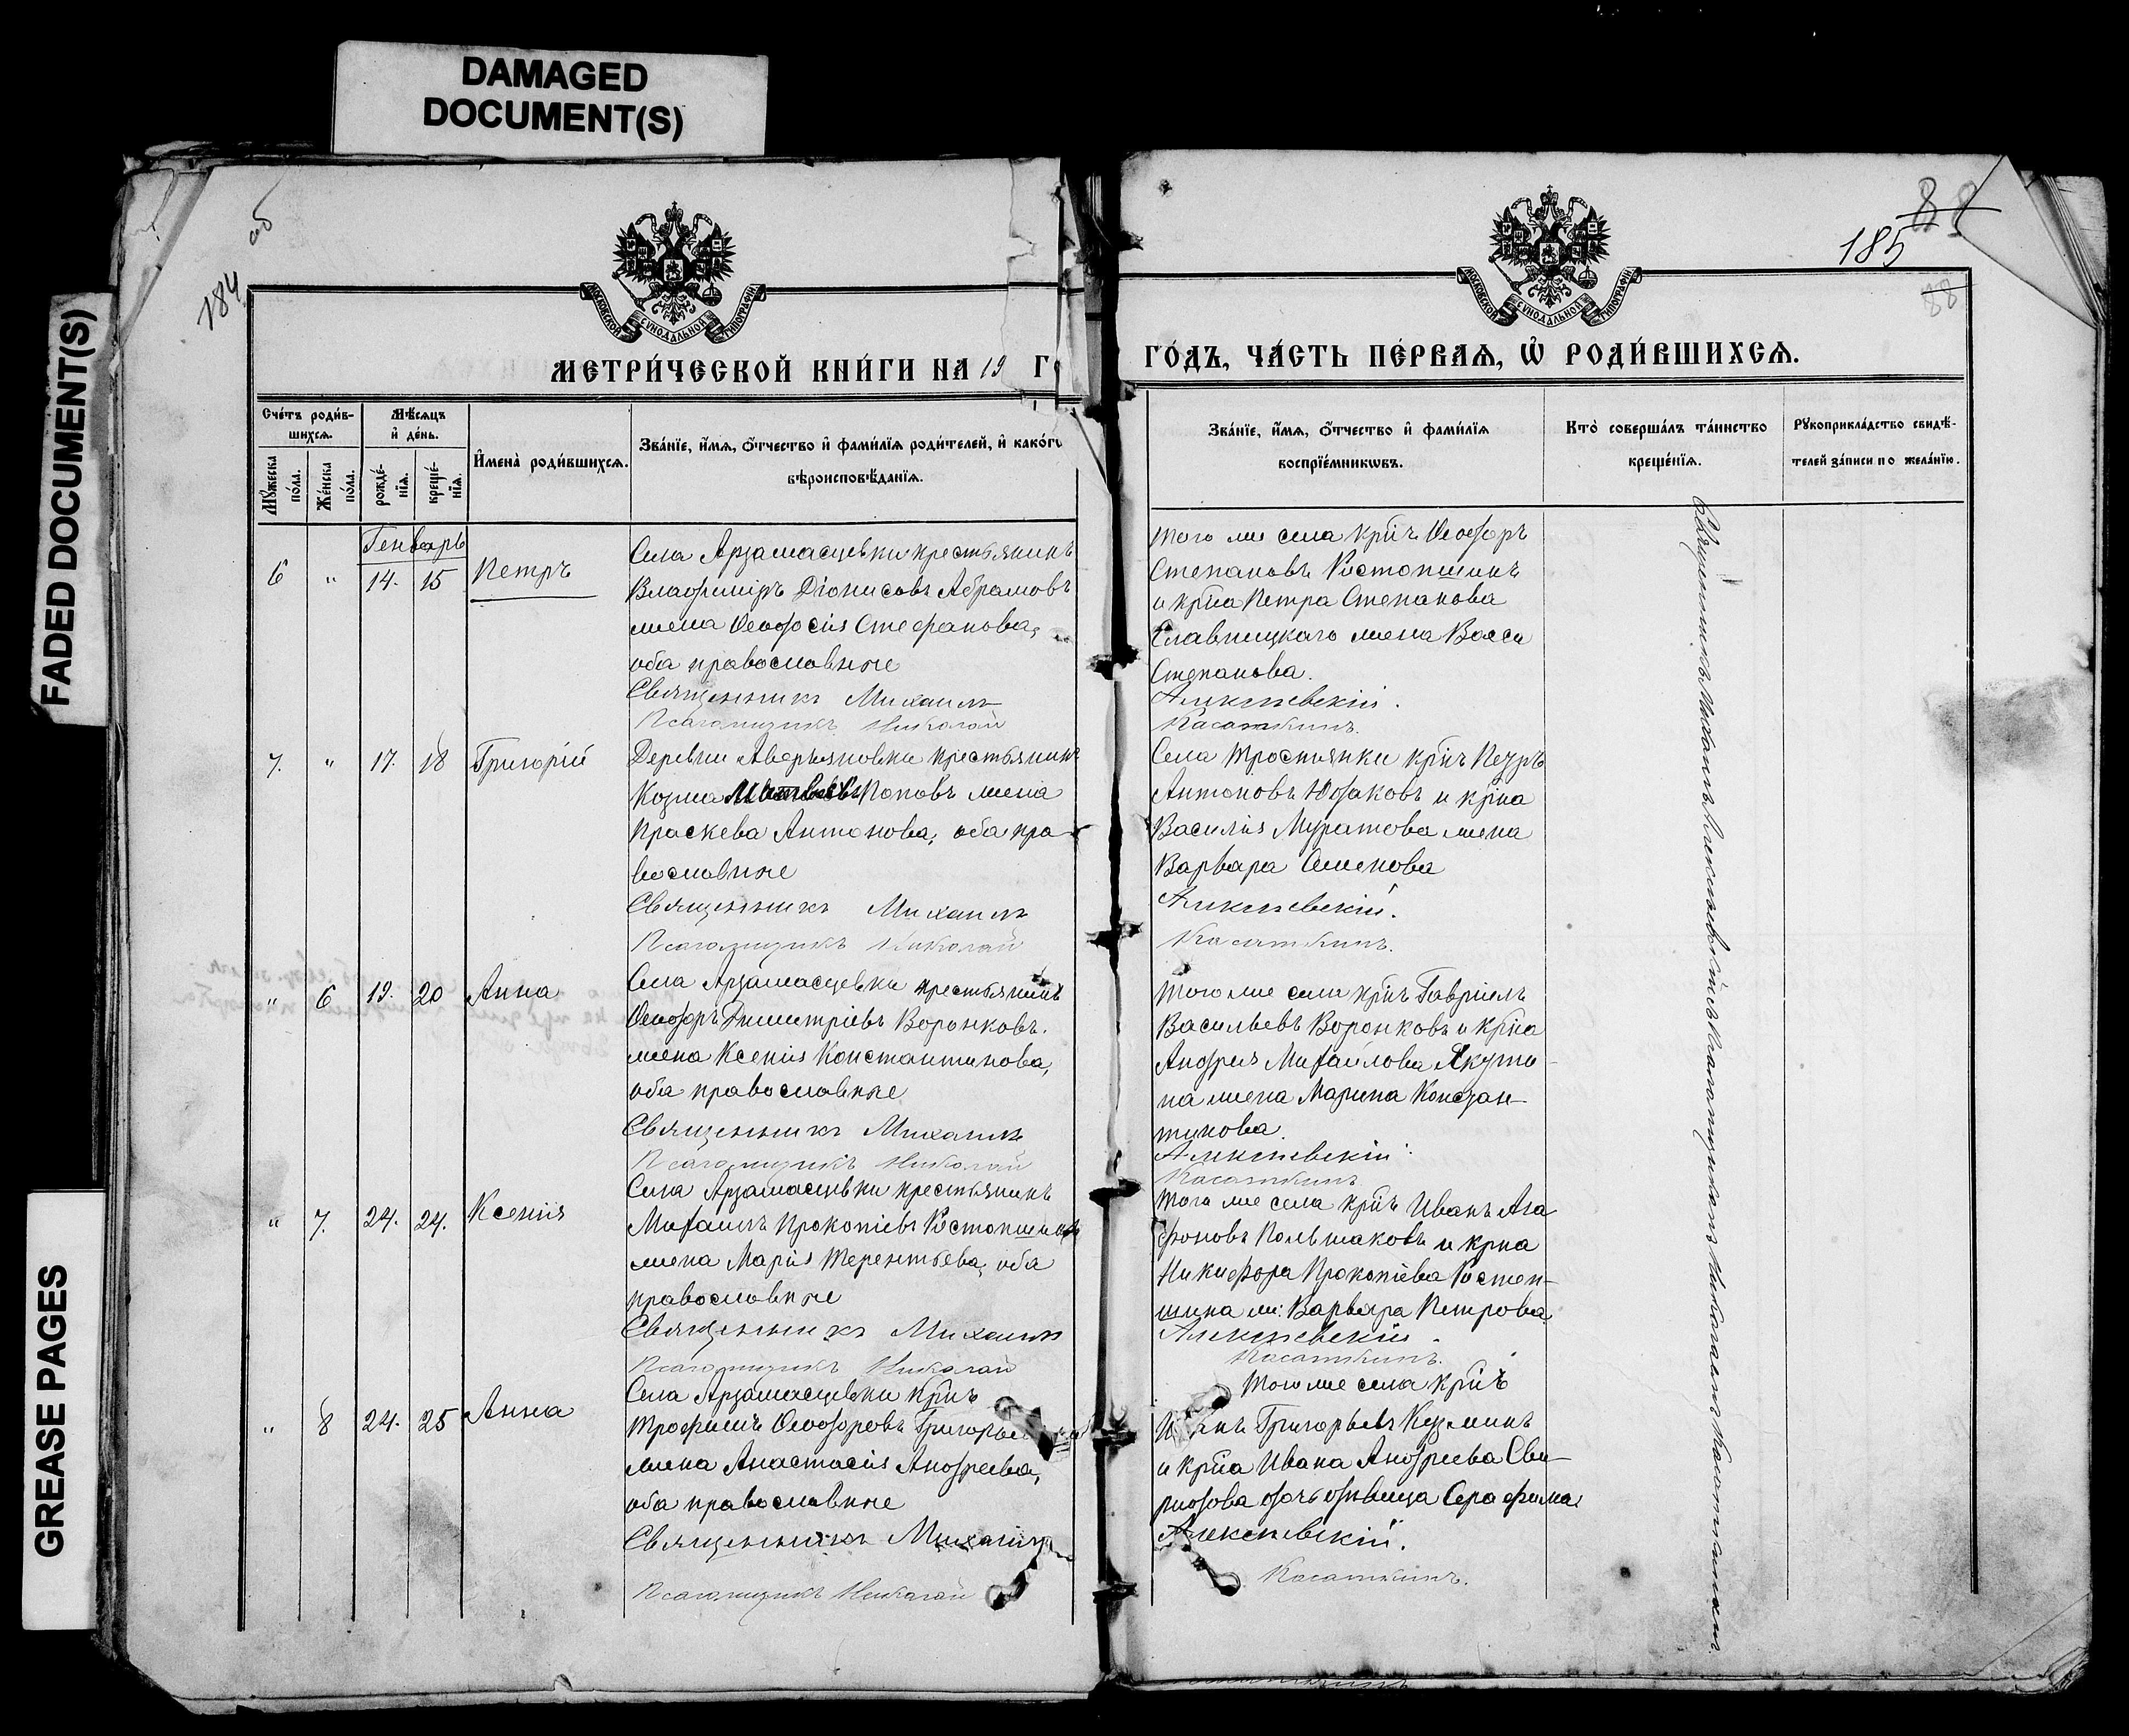 DAMAGED
DOCUMENT(S)
FADED DOCUMENT(S)
GREASE PAGES
184
об
185
88
88
МОСКОВСКОЙ СѴНОДАЛЬНОЙ ТИПОГРАФІИ
МОСКОВСКОЙ СѴНОДАЛЬНОЙ ТИПОГРАФІИ
МЕТРИ́ЧЕСКОЙ КНИ́ГИ НА 19 Г
ГО́ДЪ, ЧА́СТЬ ПЕ́РВАЯ, Ѡ҆ РОДИ́ВШИХСЯ.
Сче́тъ роди́в-
шихся.
Мѣ́сяцъ
и҆ де́нь.
Му́жеска
по́ла.
Же́нска
по́ла.
рожде́-
нїя.
креще́-
нїя.
И҆мена̀ роди́вшихся.
Зва́нїе, и҆́мя, ѻ҆́тчество и҆ фами́лїя роди́телей, и҆ како́гѡ
вѣроисповѣ́данїя.
Зва́нїе, и҆́мя, ѻ҆́тчество и҆ фами́лїя
воспрїе́мникѡвъ.
Кто̀ соверша́лъ та́инство
креще́нїя.
Рꙋкоприкла́дство свидѣ́-
телей за́писи по жела́нїю.
Генварь
6 " 14. 15 Петръ
Села Арзамасцевки крестьянинъ
Владиміръ Діонисовъ Абрамовъ
жена Ѳеодосія Стефанова,
оба православные
Священникъ Михаилъ
Псаломщикъ Николай
того же села кр̃нъ Ѳеодоръ
Степановъ Ростопшинъ
и кр̃на Петра Степанова
Славницкаго жена Васса
Степанова.
Алексеевскій.
Касаткинъ.
7. " 17. 18 Григорій
Деревни Аверьяновки крестьянинъ
Козма Поповъ жена
Праскева Антонова, оба пра-
вославные
Священникъ Михаилъ
Псаломщикъ Николай
Села Тростянки кр̃нъ Петръ
Антоновъ Юдаковъ и кр̃на
Василія Муратова жена
Варвара Семенова
Алексеевскій.
Касаткинъ.
" 6 19. 20 Анна
Села Арзамасцевки крестьянинъ
Ѳеодоръ Димитріевъ Воронковъ.
жена Ксенія Константинова,
оба православные
Священникъ Михаилъ
Псаломщикъ Николай
Того же села кр̃нъ Гавріилъ
Васильевъ Воронковъ и кр̃на
Андрея Михайлова Якути-
на жена Марина Констан-
тинова.
Алексеевскій.
Касаткинъ
" 7. 24. 24. Ксенія
Села Арзамасцевки крестьянинъ
Михаилъ Прокопіевъ Ростопшинъ
жена Марія Терентьева, оба
православные
Священникъ Михаилъ
Псаломщикъ Николай
Того же села кр̃нъ Иванъ Ага-
фоновъ Польшаковъ и кр̃на
Никифора Прокопіева Ростоп-
шина ж: Варвара Петрова.
Алексеевскій.
Касаткинъ.
" 8 24. 25 Анна
Села Арзамасцевки кр̃нъ
Трофимъ Ѳеодоровъ
жена Анастасія Андреева,
оба православные
Священникъ Михаилъ
Псаломщикъ Николай
Того же села кр̃нъ
Иванъ Григорьевъ Кузминъ
и кр̃на Ивана Андреева Сви-
ридова дочь дѣвица Серафима.
Алексеевскій.
Касаткинъ.
Священникъ Михаилъ Алексеевскій съ псаломщикомъ Николаемъ Касаткинымъ.